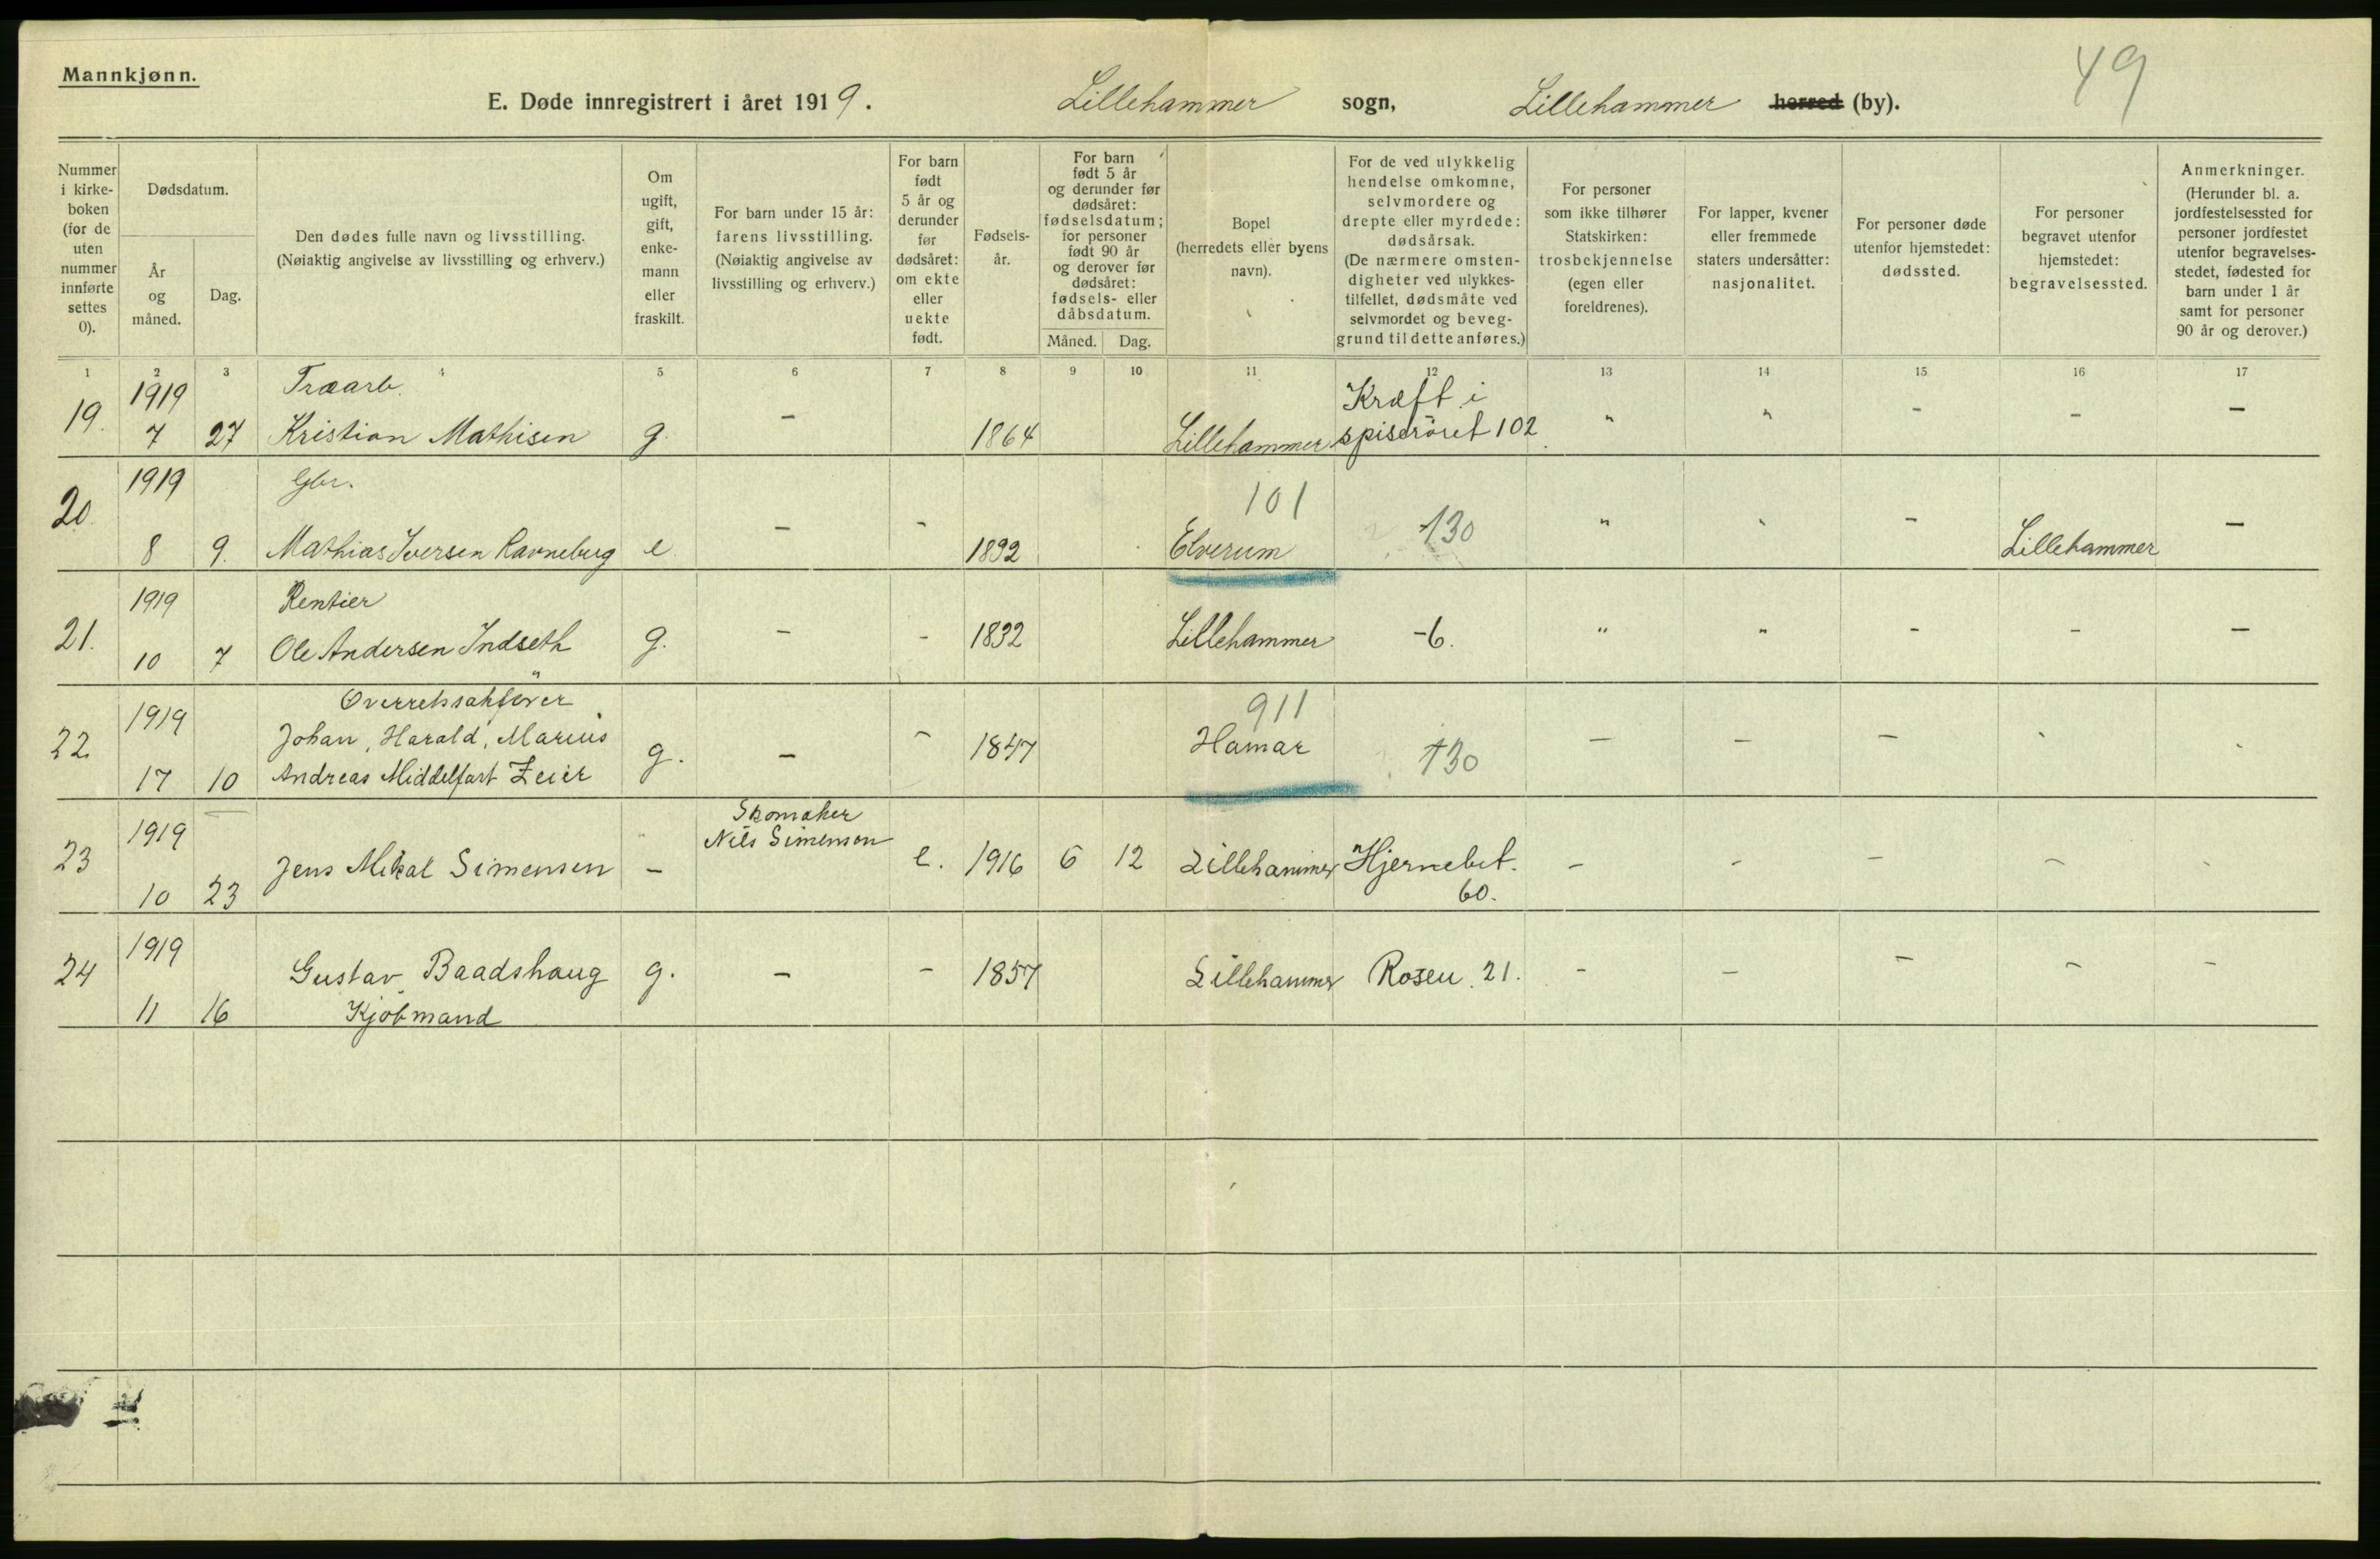 Mannkjønn.
49
E. Døde innregistrert i året 1919. Lillehammer sogn, Lillehammer herred (by).
Nummer i kirke-boken (for de uten nummer innførte settes 0).
Dødsdatum.
År og måned.
Dag.
Den dødes fulle navn og livsstilling.
(Nøiaktig angivelse av livsstilling og erhverv.)
Om ugift, gift, enke-mann eller fraskilt.
For barn under 15 år: farens livsstilling. (Nøiaktig angivelse av livsstilling og erhverv.)
For barn født 5 år og derunder før dødsåret: om ekte eller uekte født.
Fødsels-år.
For barn født 5 år og derunder før dødsåret: fødselsdatum; for personer født 90 år og derover før dødsåret: fødsels- eller dåbsdatum.
Måned. Dag.
Bopel (herredets eller byens navn).
For de ved ulykkelig hendelse omkomne, selvmordere og drepte eller myrdede: dødsårsak. (De nærmere omsten-digheter ved ulykkes-tilfellet, dødsmåte ved selvmordet og beveg-grund til dette anføres.)
For personer som ikke tilhører Statskirken: trosbekjennelse (egen eller foreldrenes).
For lapper, kvener eller fremmede staters undersåtter: nasjonalitet.
For personer døde utenfor hjemstedet: dødssted.
For personer begravet utenfor hjemstedet: begravelsessted.
Anmerkninger. (Herunder bl. a. jordfestelsessted for personer jordfestet utenfor begravelses-stedet, fødested for barn under 1 år samt for personer 90 år og derover.)
1 2 3 4 5 6 7 8 9 10 11 12 13 14 15 16 17
1919 Træarb. Kræft i
19. 7 27 Kristian Mathisen g. - 1864 Lillehammer spiserøret 102 " " - - -
1919 Gbr. 101
20. 8 9. Mathias Iversen Ravneburg e. - - 1892 Elverum 130 " " - Lillehammer -
1919 Rentier
21. 10 7 Ole Andersen Indseth g. - - 1832 Lillehammer -6. " " - - -
Overretssakfører
1919 Johan, Harald, Marius 911
22. 17 10 Andreas Middelfart Zeier g. - - 1847 Hamar 130 - - -
Skomaker
1919 Nils Simensen
23 10 23 Jens Mikal Simensen - e. 1916 6 12 Lillehammer Hjernebet. - - - -
60.
1919
24 11 16 Gustav Baadshaug g. - - 1857 Lillehammer Rosen. 21. - - - - -
Kjøbmand